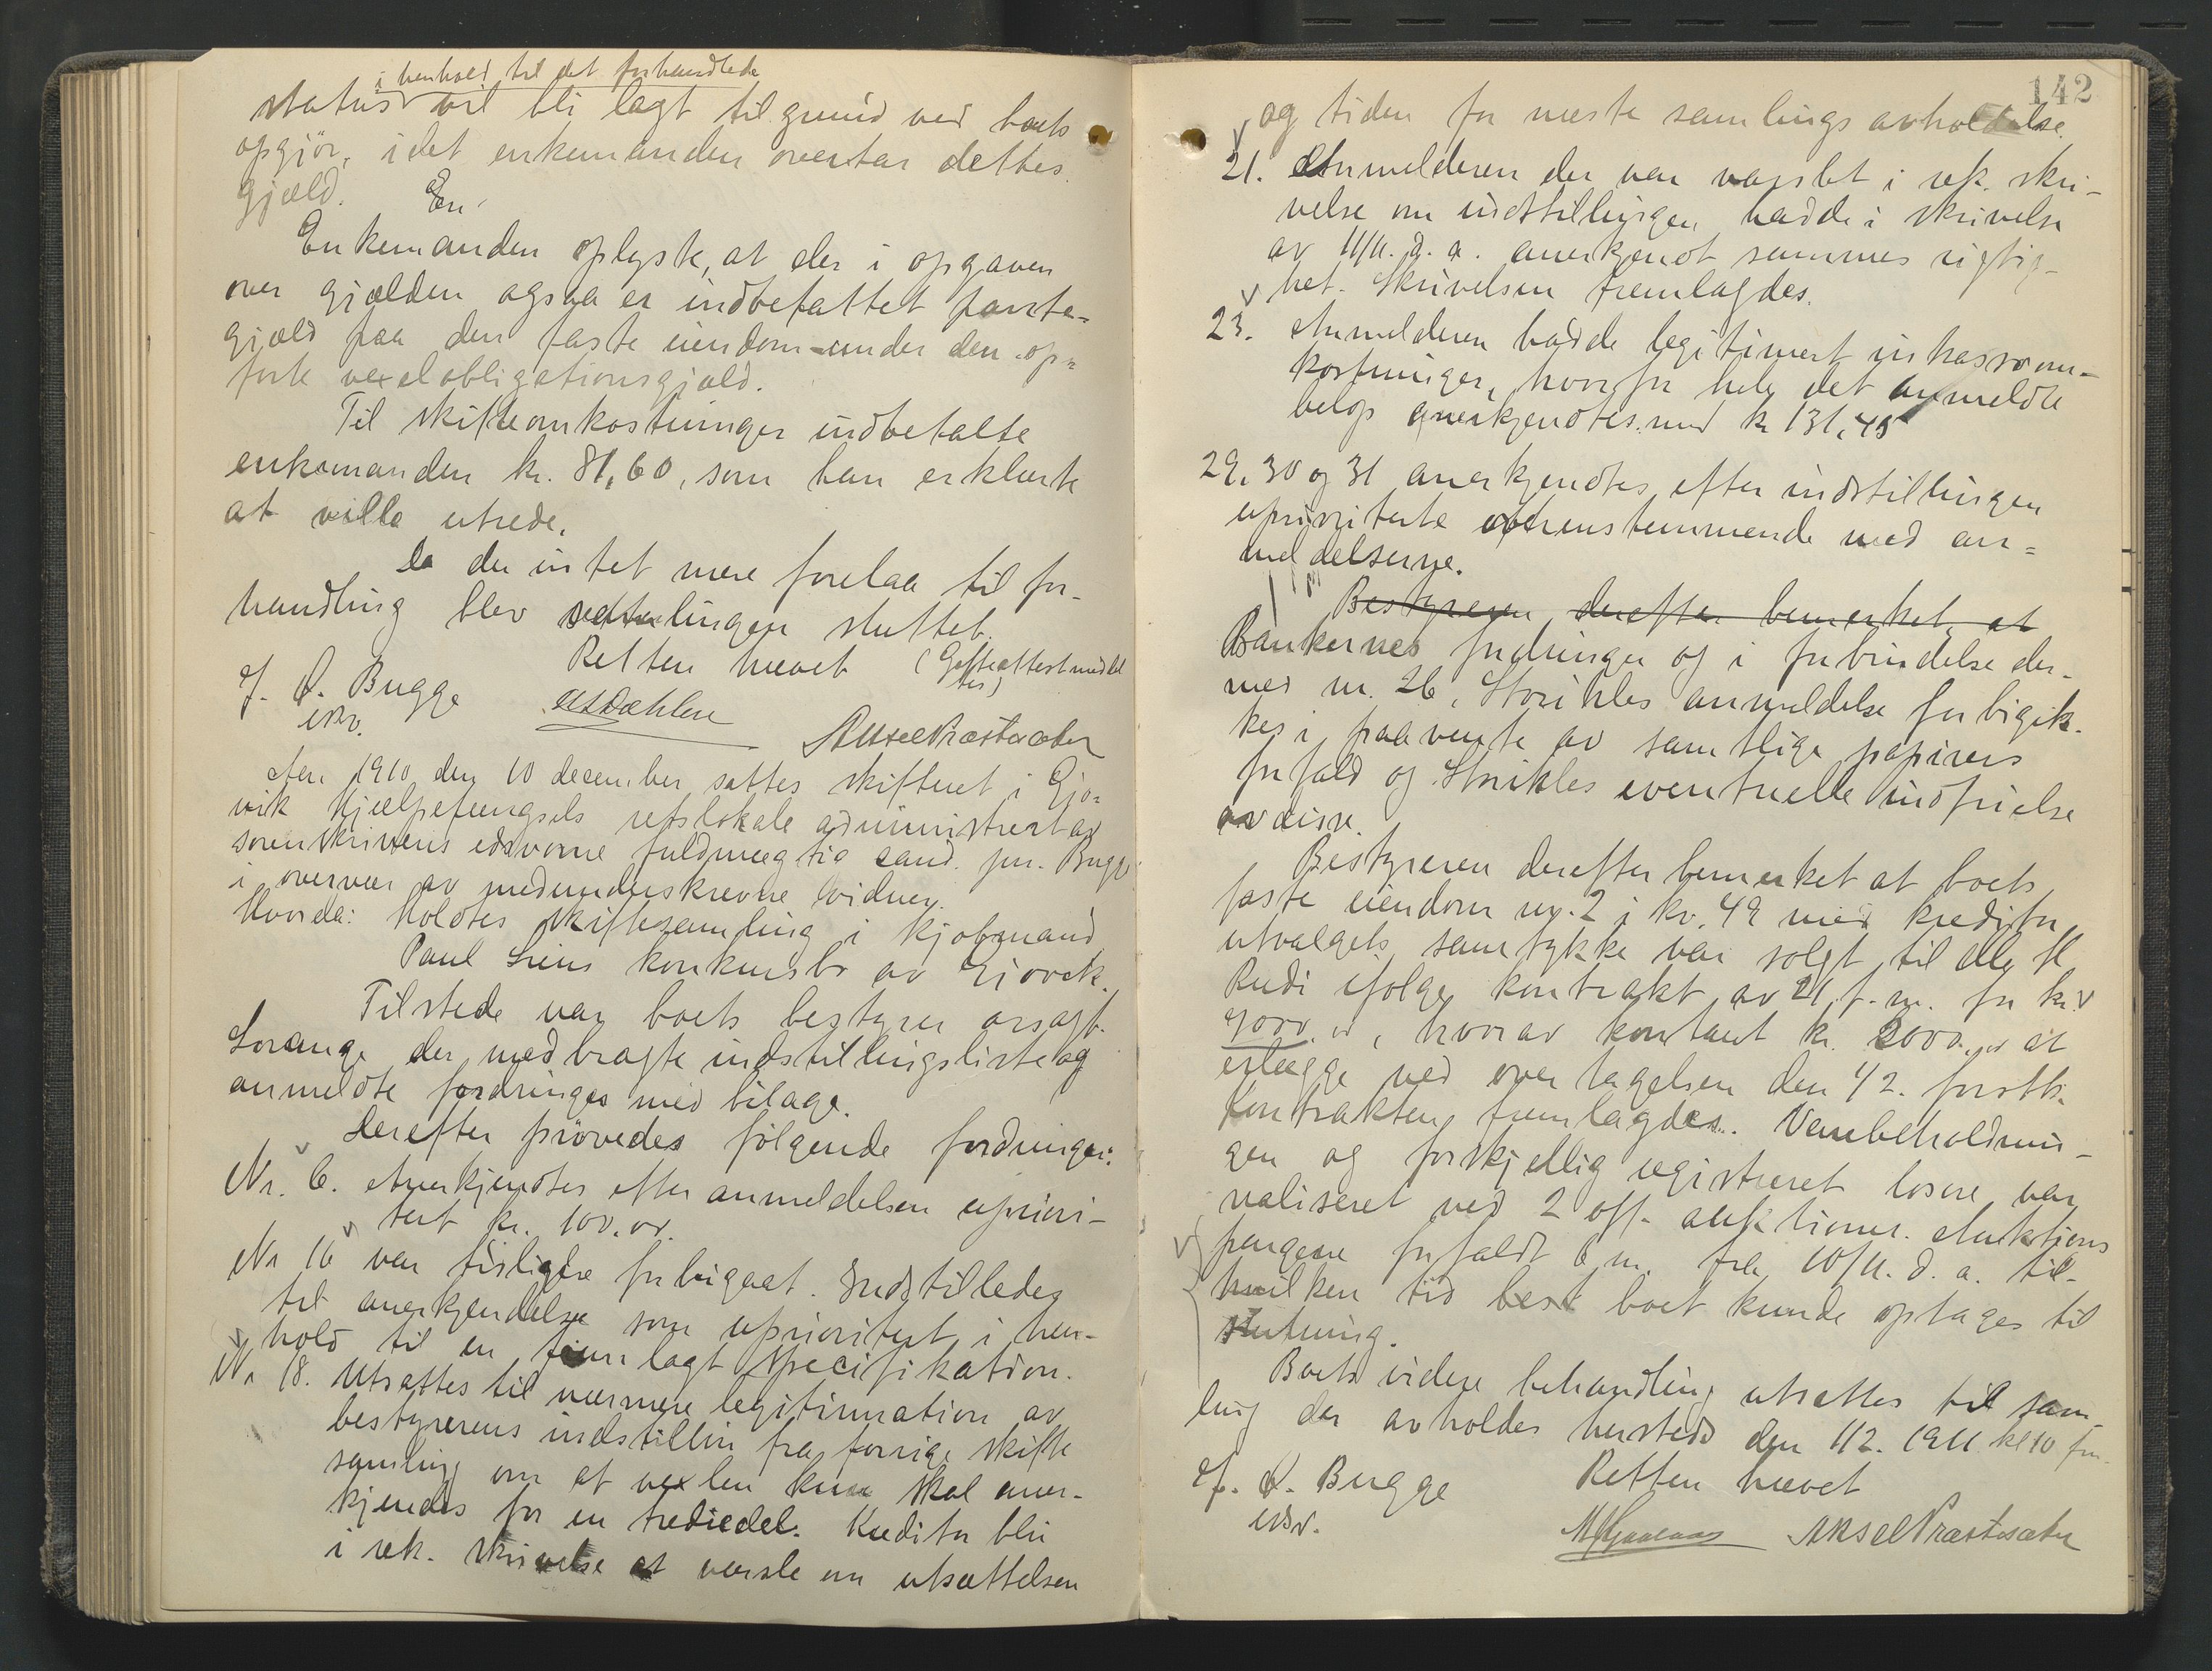 i henhold til det forhandlede
status vil bli lagt til grund ved boets
opgjör, idet enkemanden overtar dettes
gjæld. En
Enkemanden oplyste, at der i opgaven
over gjælden ogsaa er indbefattet pante-
gjæld paa den faste eiendom under den op-
forte vexelobligationsgjæld.
Til skifteomkostninger indbetalte
enkemanden kr. 81,60, som han erklærte
at ville utrede.
Da der intet mere forelaa til for-
handling blev samlingen sluttet.
Retten hævet (Gifteattest meddel
tes)
J. D. Bugge
edsv.
Aksel Præstesæter
Aar 1910 den 10 december sattes skifteret i Gjø-
vik hjælpefængsels retslokale administrert av
sorenskriverens edsvorne fuldmægtig cand. jur. Bugge
i overvær av medunderskrevne vidner.
Hvorda: Holdtes skiftesamling i kjøbmand
Paul Liens konkursbo av Gjøvik.
Tilstede var boets bestyrer orsagf.
Lorange der medbragte indstillingsliste og
anmeldte fordringer med bilage.
Derefter prövedes fölgende fordringer:
Nr. 6. Anerkjendtes efter anmeldelsen upriori-
tert kr. 100.00.
Nr 16 var tidligere forbigaat. Indstilledes
til anerkjendelse som uprioritert i hen-
hold til en fremlagt specifikation.
Nr 18. Utsattes til nærmere legitimation av
bestyrerens indstillin fra forrige skifte
samling om at vexlen kun skal aner-
kjendes for en trediedel. Kreditor blir
i rek. skrivelse at varsle om utsættelsen
142
og tiden for næste samlings avholdelse.
21. Anmelderen der var varslet i rek. skri-
velse om indstillingen hadde i skrivelse
av 11/11. d. a. anerkjendt sammes rigtig-
het. Skrivelsen fremlagdes.
23. Anmelderen hadde legitimert inkassoom-
kostninger, hvorfor hele det anmeldte
belop anerkjendtes med kr 131,45
29, 30 og 31 anerkjendtes efter indstillingen
uprioriterte overensstemmende med an-
meldelserne.
Bestyreren derefter bemerket, at
Bankernes fordringer og i forbindelse der-
med nr. 26, Storihles anmeldelse forbigik-
kes i paavente av samtlige papirers
forfald og Storihles eventuelle indfrielse
av disse.
Bestyreren derefter bemerket at boets
faste eiendom nr. 2 i kv. 49 med kreditor
utvalgets samtykke var solgt til
Rudi ifølge kontrakt av 21 f. m. for kr.
9000.00, hvorav kontant kr. 2000.00 at
erlægge ved overtagelsen den 1/2. førstk.
Kontrakten fremlagdes. Varebeholdnin-
gen og forskjellig registreret løsøre var
realiseret ved 2 off. auktioner. Auktions
pengene forfaldt 6 m. fra 10/11. d. a. til
hvilken tid best boet kunde optages til
slutning.
Boets videre behandling utsattes til sam-
ling der avholdes hersteds den 1/2. 1911. kl 10 fm.
Retten hævet
J. D. Bugge
edsv.
Aksel Præstesæter